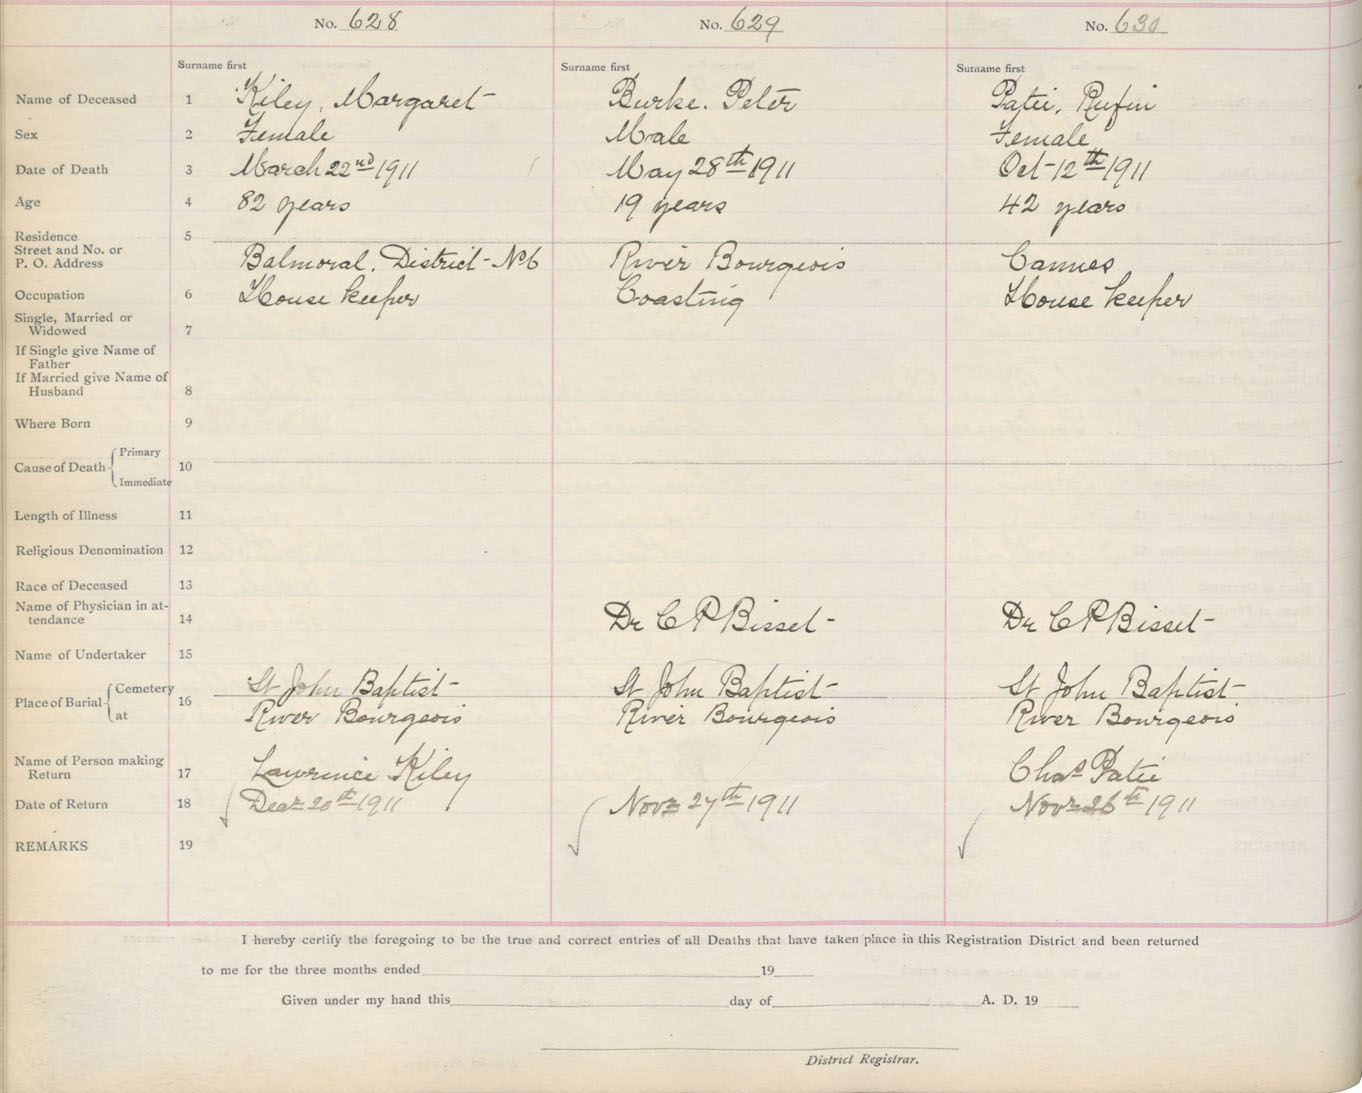 No. 628 No. 629 No. 630
Surname first Surname first Surname first
Name of Deceased 1 Kiley, Margaret Burke. Peter Patei, Rufin
Sex 2 Female Male Female
Date of Death 3 March 22nd 1911 May 28th 1911 Oct 12th 1911
Age 4 82 years 19 years 42 years
Residence 5
Street and No. or
P. O. Address Balmoral, District No 6 River Bourgeois Cannes
Occupation 6 House keeper Coasting House keeper
Single, Married or
Widowed 7
If Single give Name of
Father
If Married give Name of
Husband 8
Where Born 9
Primary
Cause of Death 10
Immediate
Length of Illness 11
Religious Denomination 12
Race of Deceased 13
Name of Physician in at-
tendance 14 Dr C P Bisset Dr C P Bisset
Name of Undertaker 15
Cemetery St John Baptist St John Baptist St John Baptist
Place of Burial 16
at River Bourgeois River Bourgeois River Bourgeois
Name of Person making
Return 17 Lawrence Kiley Chas Patei
Date of Return 18 Decr 20th 1911 Novr 27th 1911 Novr 26th 1911
REMARKS 19
I hereby certify the foregoing to be the true and correct entries of all Deaths that have taken place in this Registration District and been returned
to me for the three months ended 19
Given under my hand this day of A. D. 19
District Registrar.